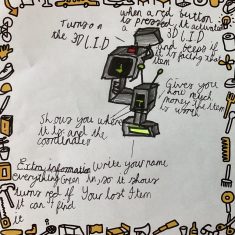 when a red button
is pressed it activates
a 3D L.I.D
and beeps if
it is facing that
item
Turns on
the 3D L.I.D
Gives you
how much
money the item
is worth
Shows you where
it is and the
coordinates
Extra information Write your name
everything Green in, so it shows
turns red if Your lost Item
it can't find
it